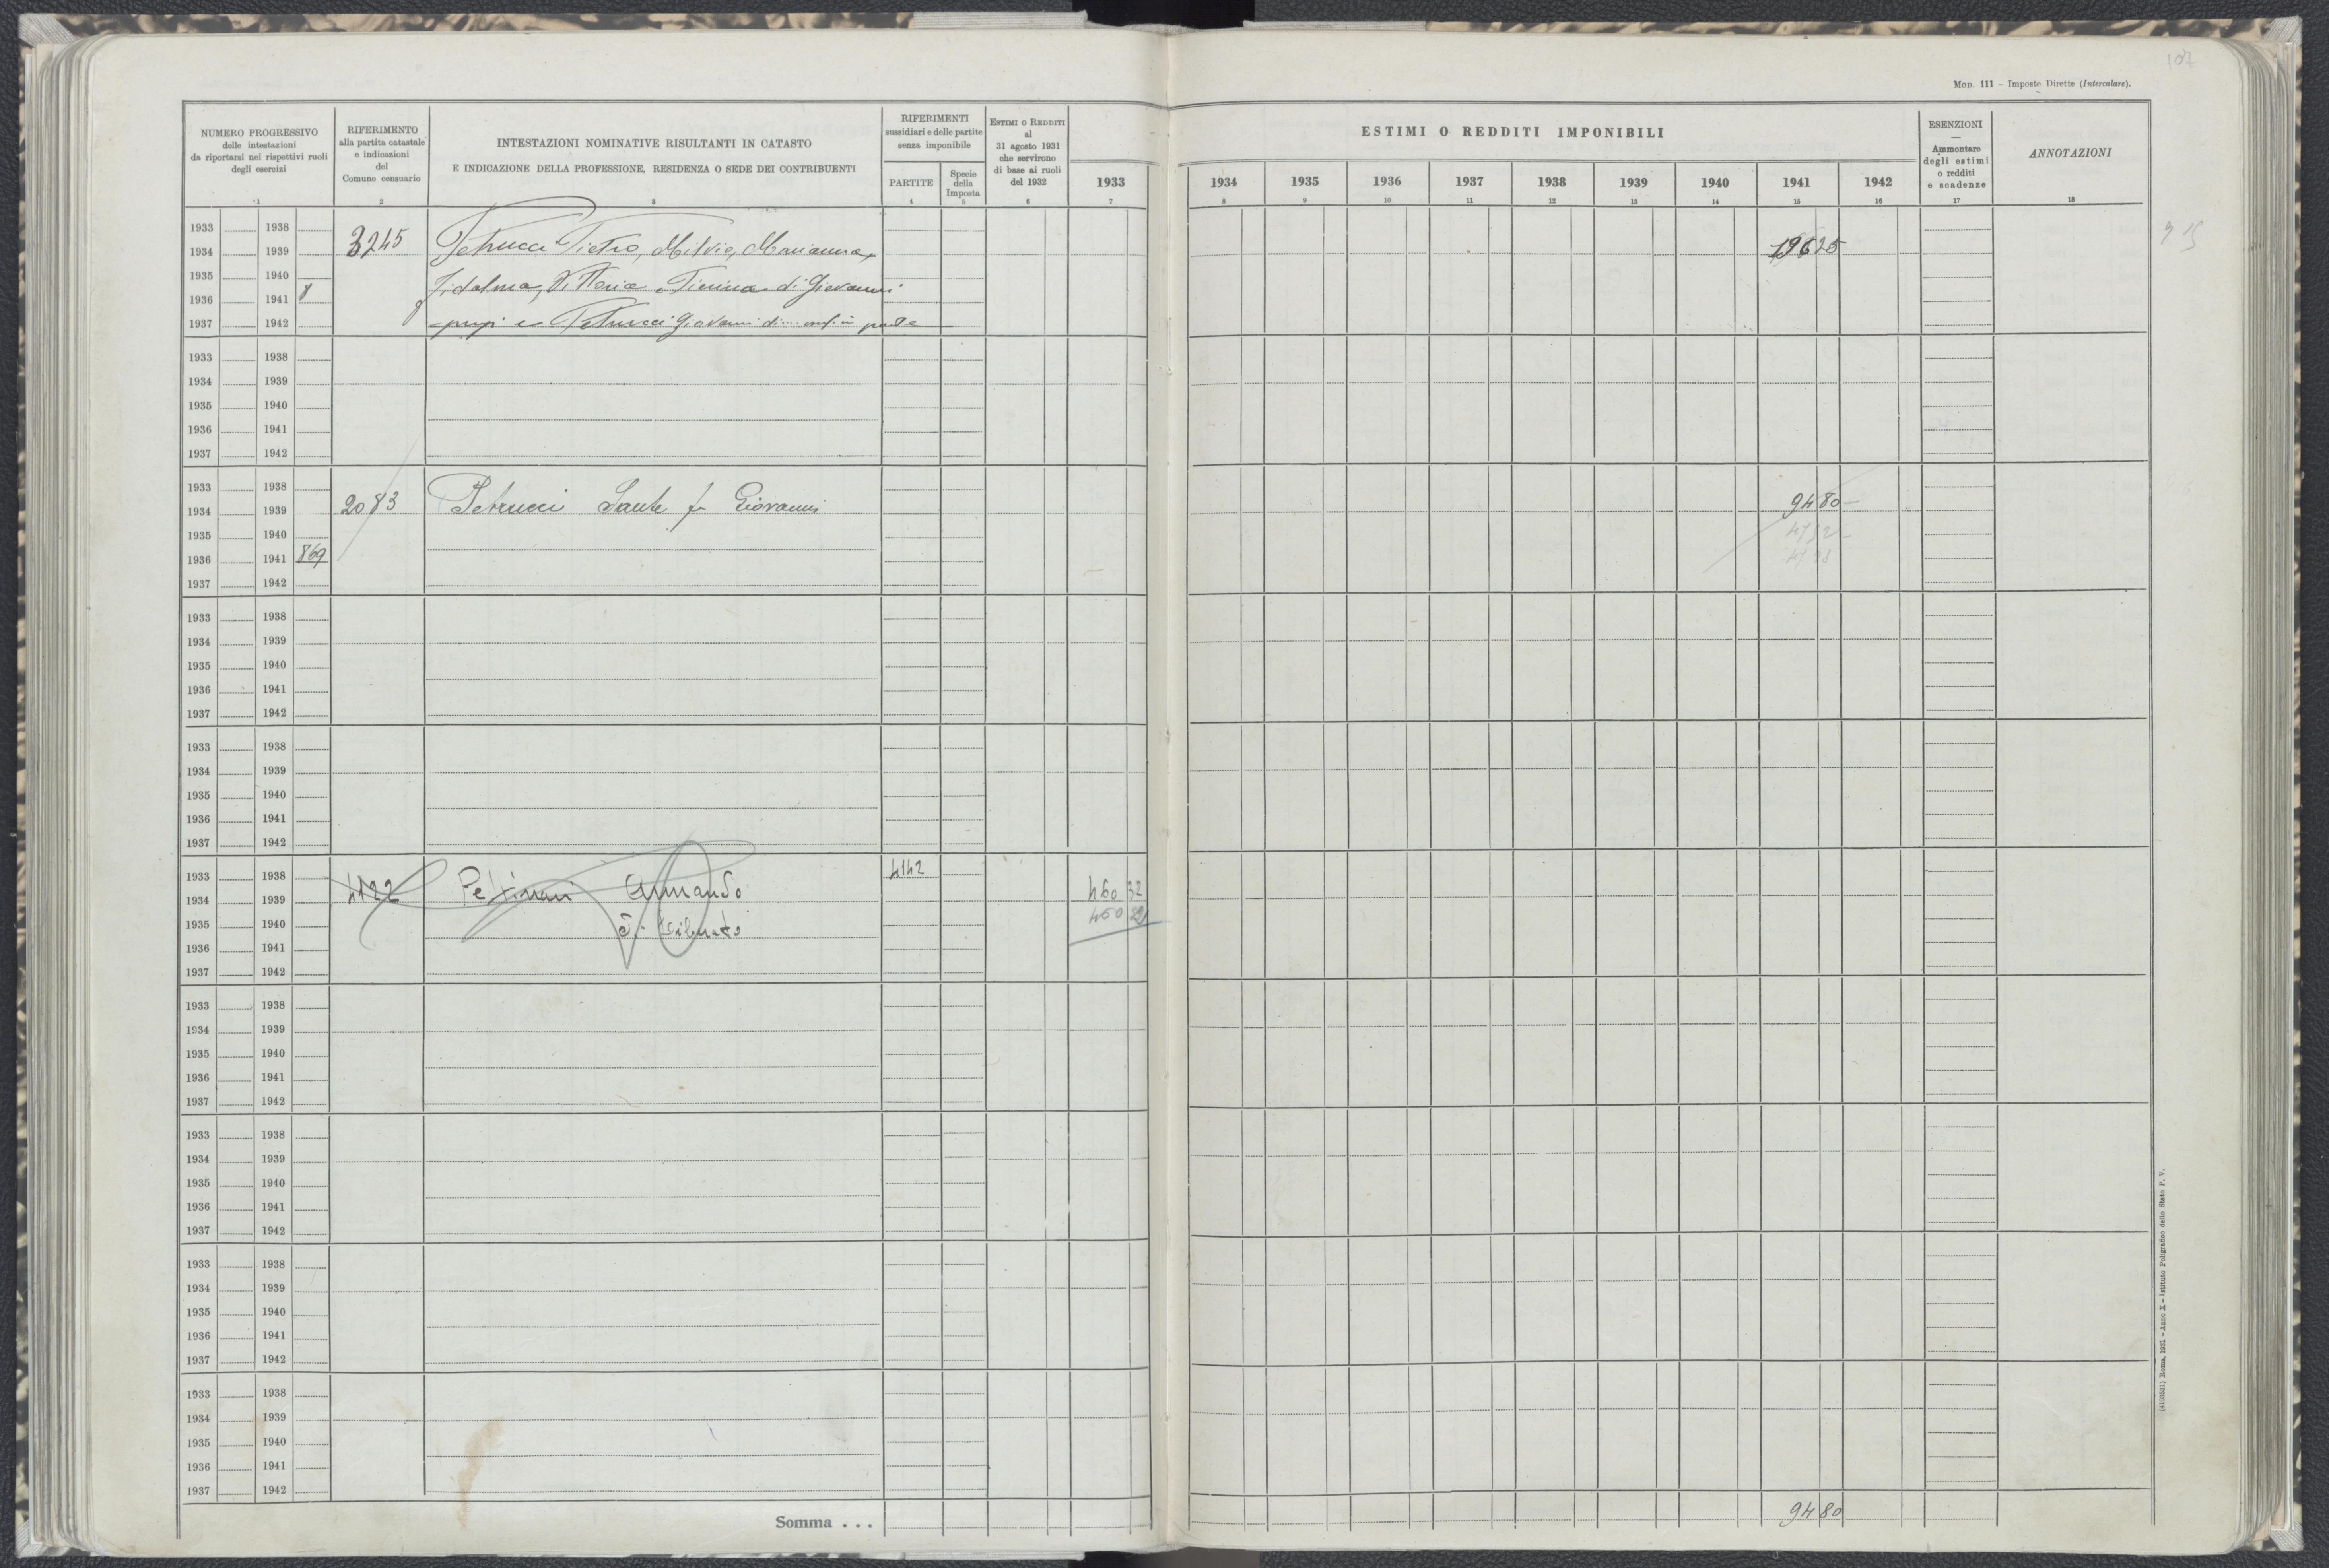 107
MOD. 111 – Imposte Dirette (Intercalare).
NUMERO PROGRESSIVO
delle intestazioni
da riportarsi nei rispettivi ruoli
degli esercizi
1
RIFERIMENTO
alla partita catastale
e indicazioni
del
Comune censuario
2
INTESTAZIONI NOMINATIVE RISULTANTI IN CATASTO
E INDICAZIONE DELLA PROFESSIONE, RESIDENZA O SEDE DEI CONTRIBUENTI
3
RIFERIMENTI
sussidiari e delle partite
senza imponibile
PARTITE
4
Specie
della
Imposta
5
ESTIMI O REDDITI
al
31 agosto 1931
che servirono
di base ai ruoli
del 1932
6
ESTIMI O REDDITI IMPONIBILI
1933 1934 1935 1936 1937 1938 1939 1940 1941 1942
7 8 9 10 11 12 13 14 15 16
ESENZIONI
—
Ammontare
degli estimi
o redditi
e scadenze
17
ANNOTAZIONI
18
1933 1938
1934 1939 3245 Petrucci Pietro, Milvia, Marianna, 196 25
1935 1940 Fidalma, Vittoria e Pierina di Giovanni
1936 1941
1937 1942 propr e Petrucci Giovanni di usuf. in parte
1933 1938
1934 1939
1935 1940
1936 1941
1937 1942
1933 1938
1934 1939 2083 Petrucci Sante fu Giovanni 94 80
1935 1940
1936 1941 869
1937 1942
1933 1938
1934 1939
1935 1940
1936 1941
1937 1942
1933 1938
1934 1939
1935 1940
1936 1941
1937 1942
1933 1938 4142
1934 1939 4122 Pettinari Armando 460 32
1935 1940 di 460 32
1936 1941
1937 1942
1933 1938
1934 1939
1935 1940
1936 1941
1937 1942
1933 1938
1934 1939
1935 1940
1936 1941
1937 1942
1933 1938
1934 1939
1935 1940
1936 1941
1937 1942
1933 1938
1934 1939
1935 1940
1936 1941
1937 1942
Somma . . . 94 80
(4105031) Roma, 1931 – Anno X – Istituto Poligrafico dello Stato P. V.